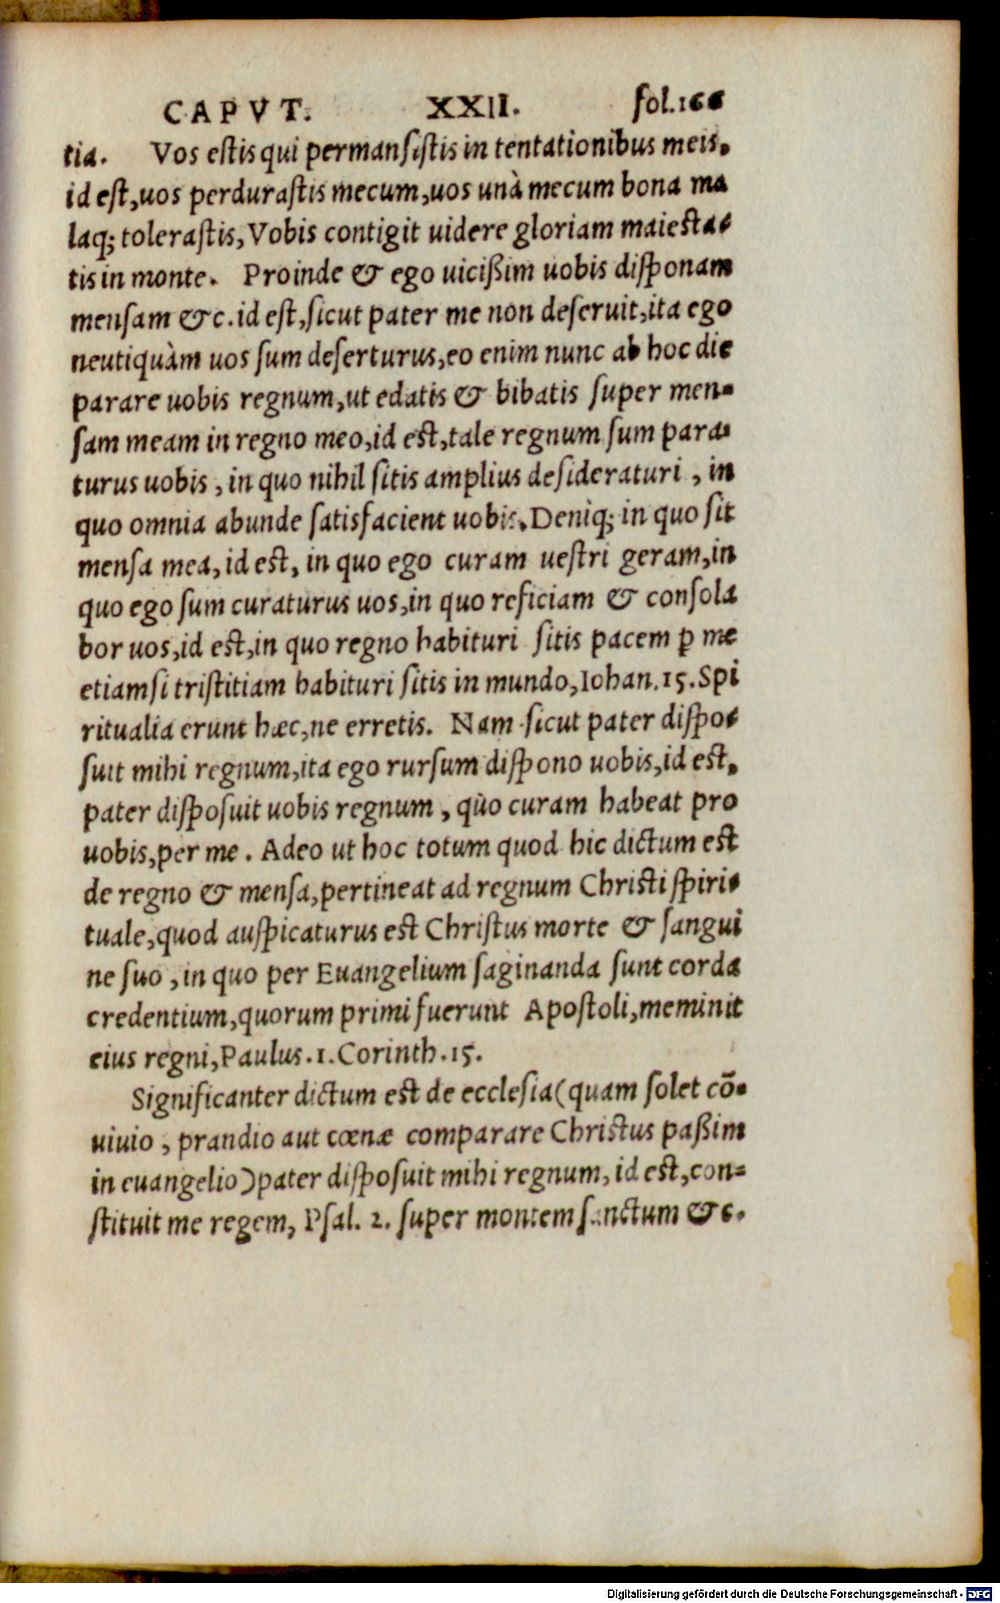 CAPVT. XXII. fol.166
tia. Vos estis qui permansistis in tentationibus meis.
id est, uos perdurastis mecum, uos unà mecum bona ma
laq; tolerastis, Vobis contigit uidere gloriam maiesta-
tis in monte. Proinde & ego uicißim uobis disponam
mensam &c. id est, sicut pater me non deseruit, ita ego
neutiquàm uos sum deserturus, eo enim nunc ab hoc die
parare uobis regnum, ut edatis & bibatis super men-
sam meam in regno meo, id est, tale regnum sum para-
turus uobis, in quo nihil sitis amplius desideraturi, in
quo omnia abunde satisfacient uobis. Deniq; in quo sit
mensa mea, id est, in quo ego curam uestri geram, in
quo ego sum curaturus uos, in quo reficiam & consola
bor uos, id est, in quo regno habituri sitis pacem ꝑ me
etiamsi tristitiam habituri sitis in mundo, Iohan. 15. Spi
ritualia erunt hæc, ne erretis. Nam sicut pater dispo-
suit mihi regnum, ita ego rursum dispono uobis, id est.
pater disposuit uobis regnum, quò curam habeat pro
uobis, per me. Adeo ut hoc totum quod hic dictum est
de regno & mensa, pertineat ad regnum Christi spiri-
tuale, quod auspicaturus est Christus morte & sangui
ne suo, in quo per Euangelium saginanda sunt corda
credentium, quorum primi fuerunt Apostoli, meminit
eius regni, Paulus. 1. Corinth. 15.
Significanter dictum est de ecclesia (quam solet cō-
uiuio, prandio aut cœnæ comparare Christus paßim
in euangelio) pater disposuit mihi regnum, id est, con-
stituit me regem, Psal. 2. super montem sanctum &c.
Digitalisierung gefördert durch die Deutsche Forschungsgemeinschaft - DFG